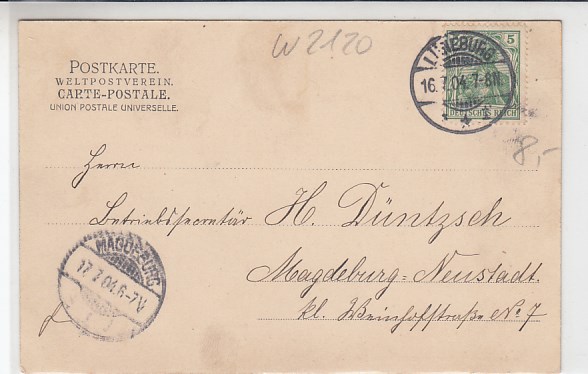 W 2120
POSTKARTE.
WELTPOSTVEREIN.
CARTE-POSTALE.
UNION POSTALE UNIVERSELLE.
5
LÜNEBURG
16.7.04. 7-8N
DEUTSCHES REICH
8,-
Herrn
Betriebssecretär H. Düntzsch
Magdeburg-Neustadt.
kl. Weinhofstraße No 7
MAGDEBURG
17.7.04. 6-7V